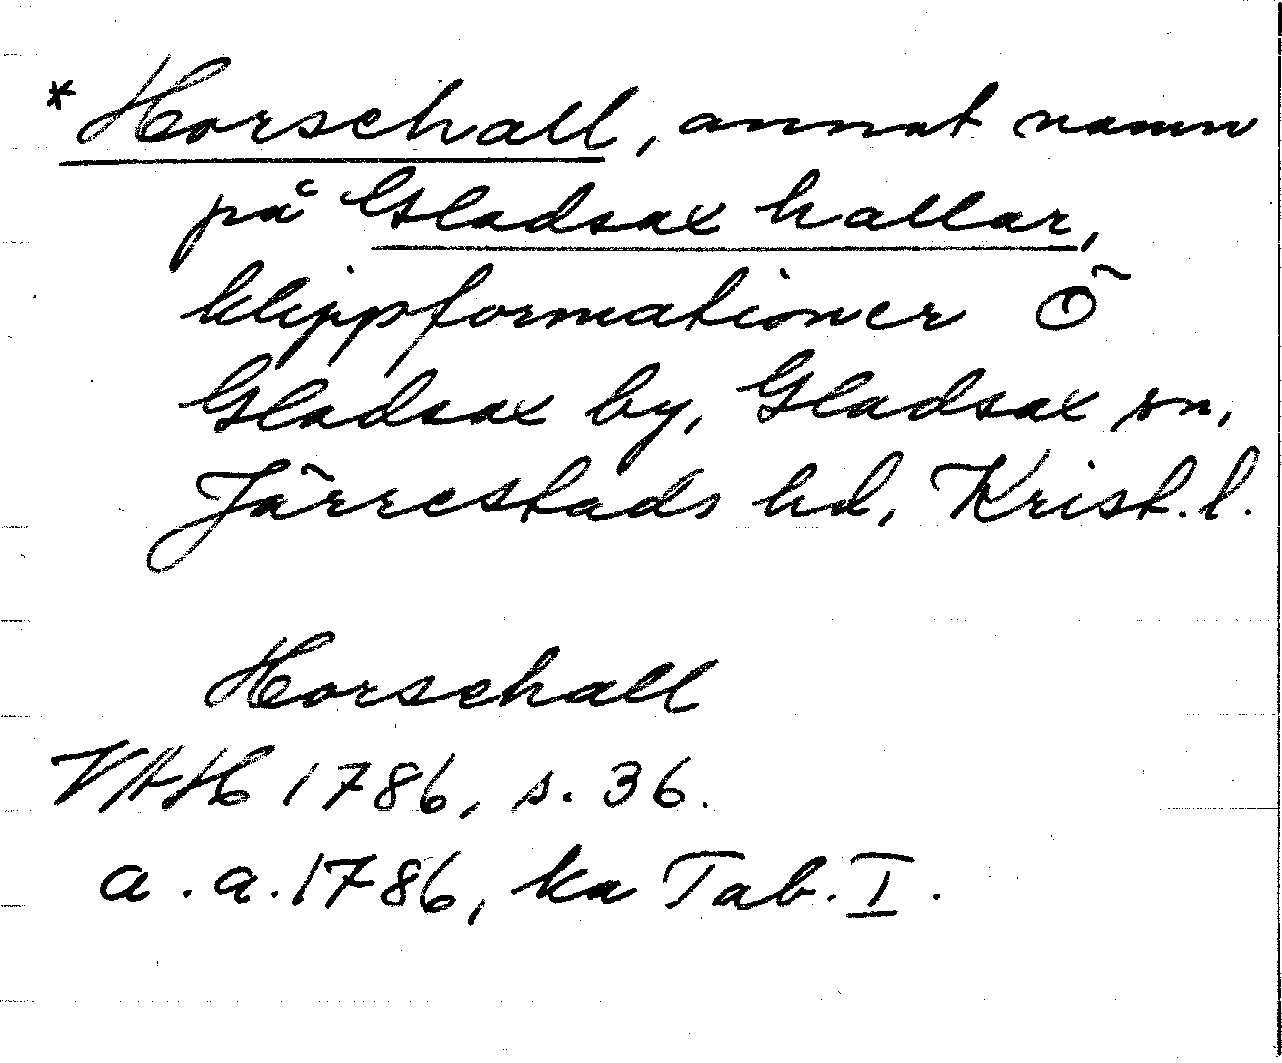 * Horschall, annat namn
på Gladsax hallar,
klippformationer Ö
Gladsax by, Gladsax sn,
Järrestads hd, Krist. l.
Horschall
VAH 1786, s. 36.
a. a. 1786, ka Tab. I.